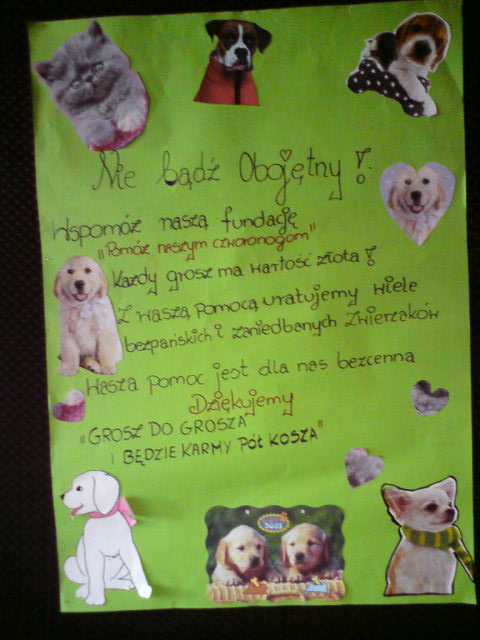 Nie bądź Obojętny!
Wspomóż naszą fundację
"Pomóż naszym czworonogom"
Każdy grosz ma wartość złota!
Z waszą pomocą uratujemy wiele
bezpańskich i zaniedbanych zwierzaków
Wasza pomoc jest dla nas bezcenna
Dziękujemy
"GROSZ DO GROSZA
I BĘDZIE KARMY PÓŁ KOSZA"